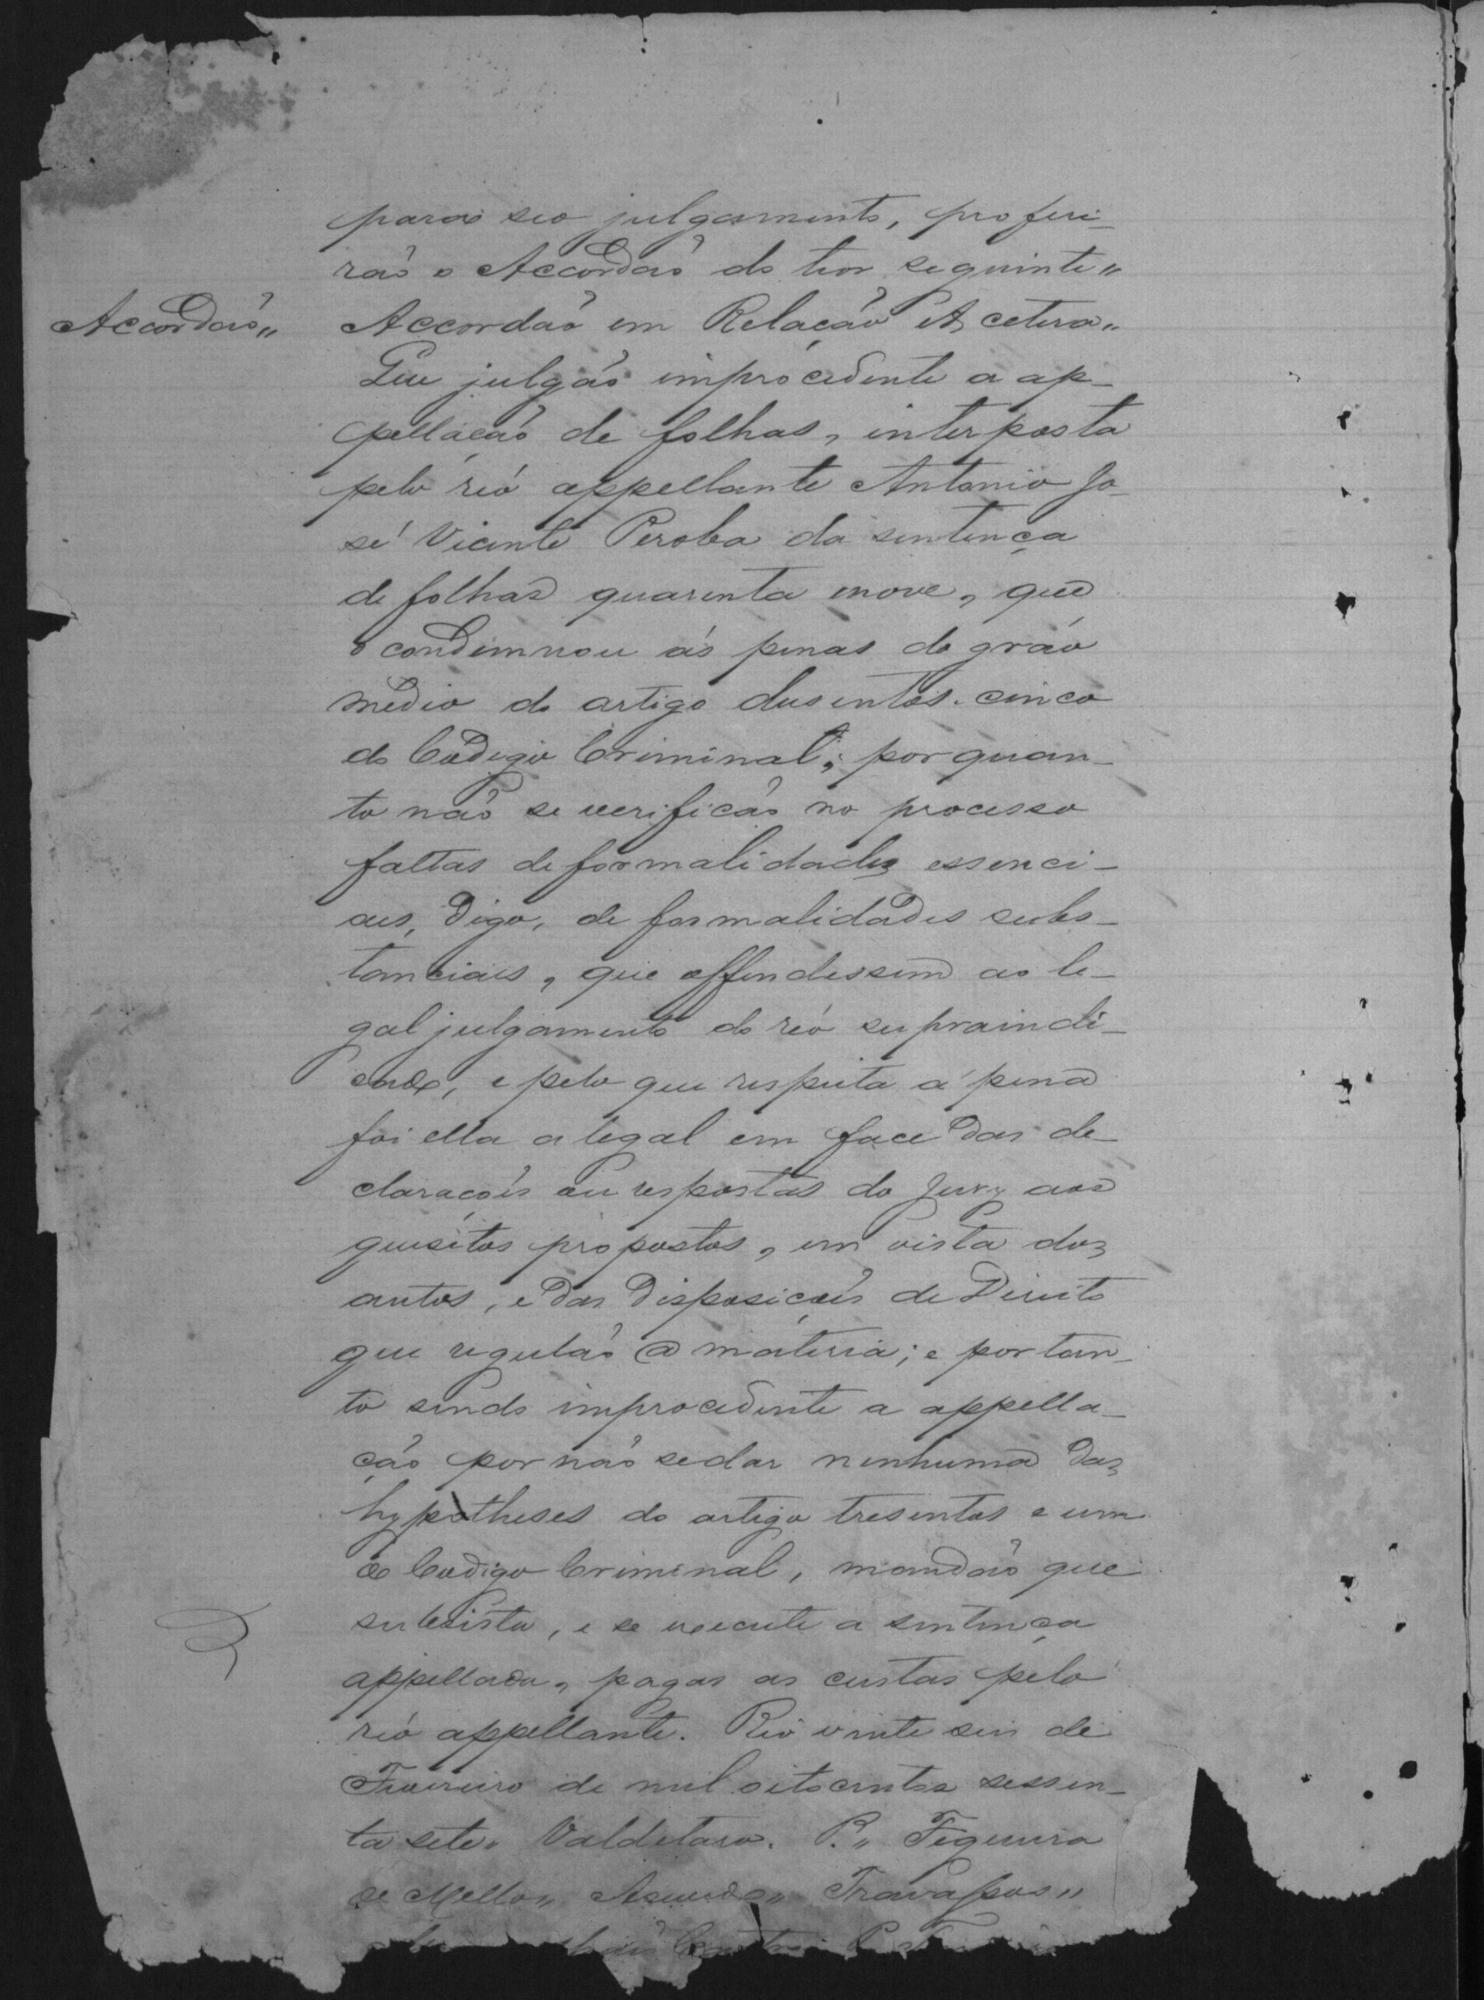 para seo julgamento, proferi-
rão o Accordão do teor seguinte"
Accordão"
Accordão em Relação Et cetera"
Que julgão improcedente a ap-
pellação de folhas, interposta
pelo réo appellante Antonio Jo-
sé Vicente Peroba da sentença
de folhas quarenta nove, que
o condemnou ás penas do gráo
medio do artigo dusentos cinco
do Codigo Criminal; porquan-
to não se verificão no processo
faltas de formalidades essenci-
aes, digo, de formalidades subs-
tanciaes, que offendessem ao le-
gal julgamento do réo supraindi-
cado, e pelo que respeita á pena
foi ella a legal em face das de-
clarações ou respostas do Jury aos
quesitos propostos, em vista dos
autos, e das disposições de Direito
que regulão a materia; e portan-
to sendo improcedente a appella-
ção por não se dar nenhuma das
hypotheses do artigo tresentos e um
do Codigo Criminal, mandão que
subsista, e se execute a sentença
appellada, pagas as custas pelo
réo appellante. Rio vinte seis de
Fevereiro de mil oitocentos sessen-
ta sete" Valdetaro. P." Figueira
de Mello" Azevedo" Travassos"